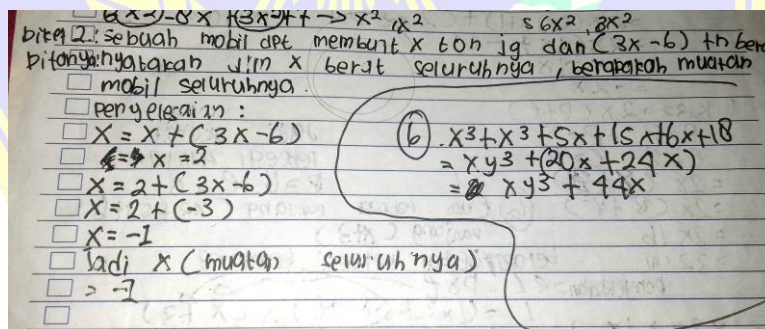 x² x² 56x², 8x²
Diket 2.: Sebuah mobil dpt membuat x ton jg dan (3x-6) tn bera
Ditanya: nyatakan dlm x berat seluruhnya, berapakah muatan
mobil seluruhnya.
Penyelesaian :
X = X + (3x-6)
x = 2
X = 2 + (3x-6)
X = 2 + (-3)
X = -1
Jadi x (muatan seluruhnya)
= -1
6 . x³ + x³ + 5x + 15x + 6x + 18
= xy³ + (20x + 24x)
= xy³ + 44x